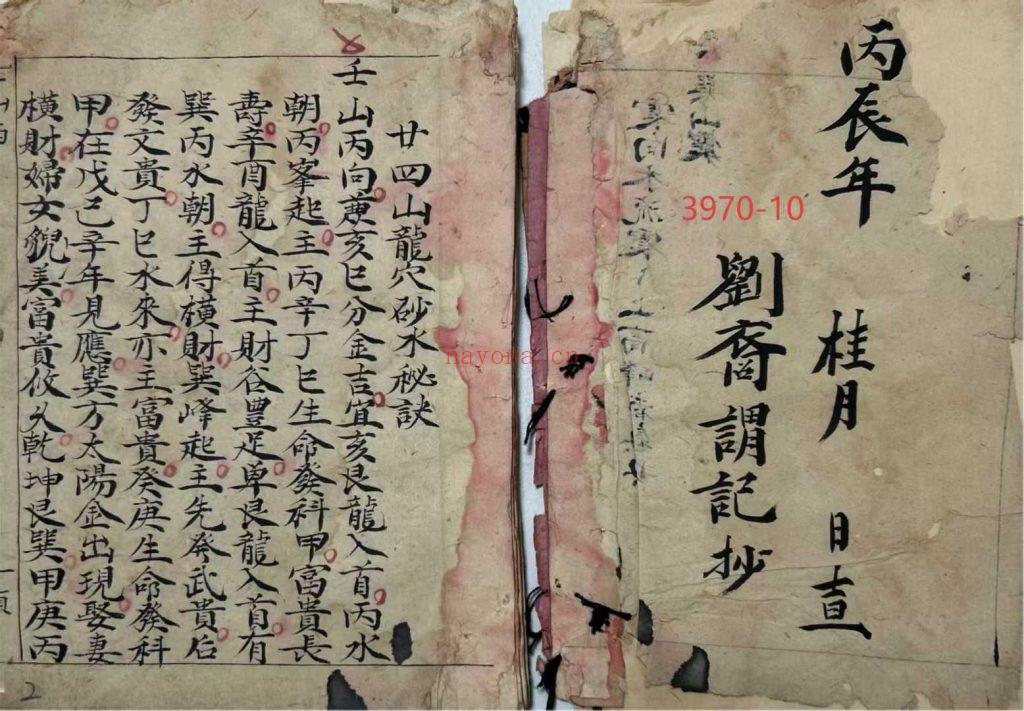 丙辰年
桂月
日吉旦
劉裔謂記抄
3970-10
nayona.cn
廿四山龍穴砂水秘訣
壬山丙向兼亥巳分金吉宜亥艮龍入首丙水
朝丙峯起主丙辛丁巳生命發科甲富貴長
壽辛酉龍入首主財谷豊足单艮龍入首有
巽丙水朝主得橫財巽峰起主先發武貴后
發文貴丁巳水來亦主富貴癸庚生命發科
甲在戊己辛年見應巽方太陽金出現娶妻
橫財婦女貌美富貴攸久乾坤艮巽甲庚丙
2